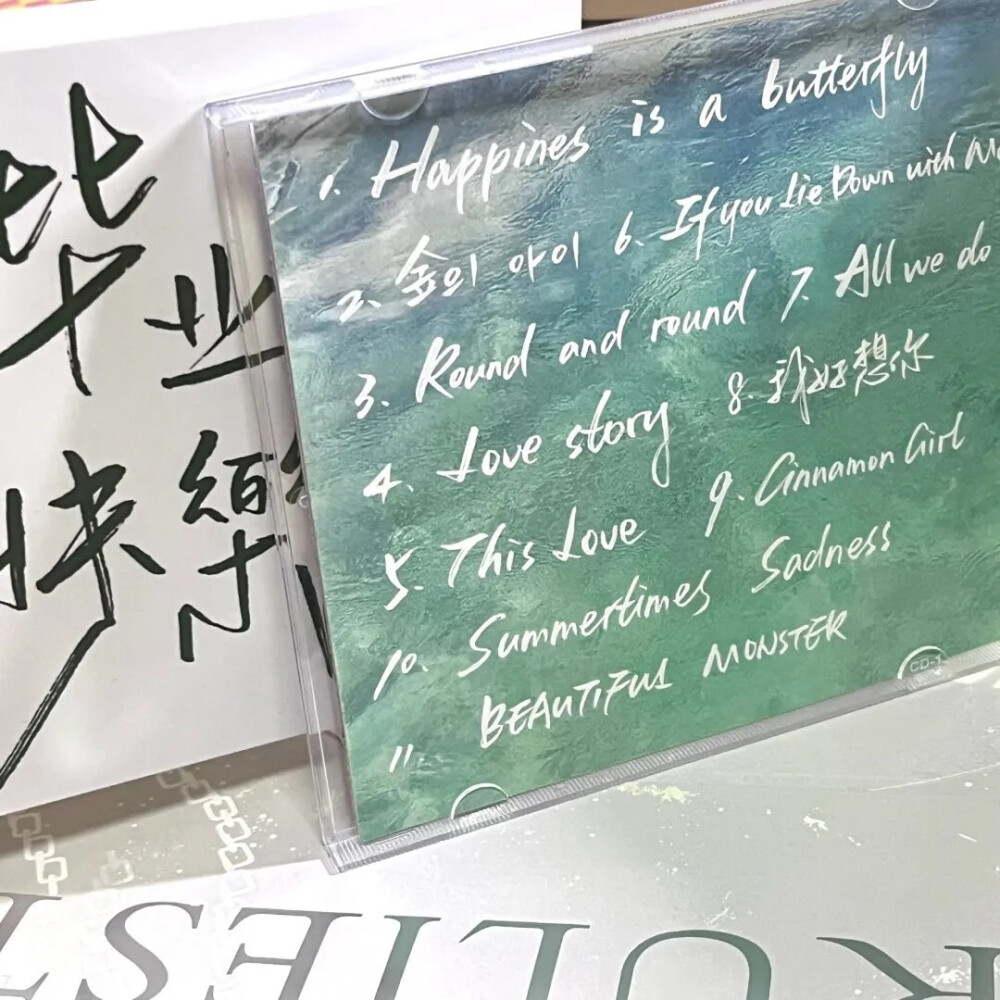 毕业
快樂
1. Happines is a butterfly
2. 숲의 아이
6. If you Lie Down with
3. Round and round
7. All we do
4. Love story
8. 我好想你
5. This Love
9. Cinnamon Girl
10. Summertimes Sadness
11 BEAUTIFUL MONSTER
CD-1